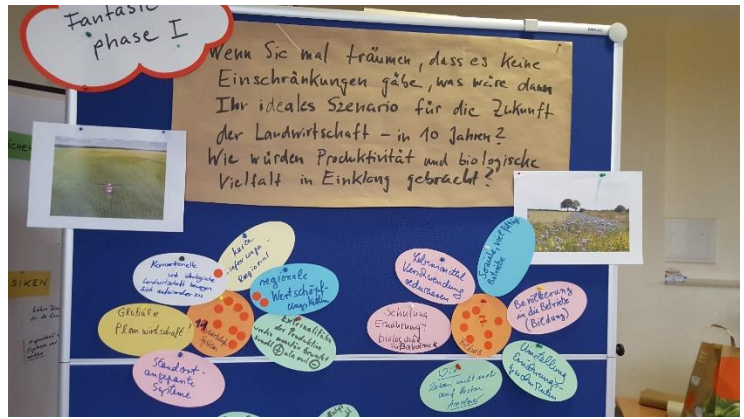 Fantasie
phase I
Wenn Sie mal träumen, dass es keine
Einschränkungen gäbe, was wäre dann
Ihr ideales Szenario für die Zukunft
der Landwirtschaft – in 10 Jahren?
Wie würden Produktivität und biologische
Vielfalt in Einklang gebracht?
SIKEN
Konventionelle
und ökologische
Landwirtschaft bewegen
sich aufeinander zu
kurze
Regional
regionale
Wertschöpf-
ungsketten
Globale
Planwirtschaft
11
Externalitäten
der Produktion
Standort-
angepasste
Systeme
Lebensmittel
Verschwendung
reduzieren
Soziale, vielfältige
Betriebe
Schulung
Ernährung
biologischer
Fußabdruck
7
Bildung
Bevölkerung
in die Betriebe
(Bildung)
Umstellung
Ernährungs-
gewohnheiten
Wir
leben nicht mehr
auf Kosten
anderer